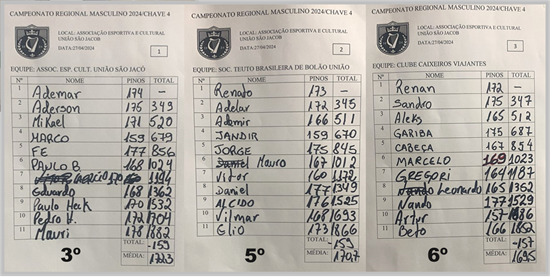 CAMPEONATO REGIONAL MASCULINO 2024/CHAVE 4
LOCAL: ASSOCIAÇÃO ESPORTIVA E CULTURAL
UNIÃO SÃO JACOB
DATA:27/04/2024
1
EQUIPE: ASSOC. ESP. CULT. UNIÃO SÃO JACÓ
Nº NOME PINOS TOTAL
1 Ademar 174 —
2 Aderson 175 349
3 Mikael 171 520
4 MARCO 159 679
5 FE 177 856
6 PAULO B. 168 1024
7 1194
8 Eduardo 168 1362
9 Paulo Heck 170 1532
10 Pedro V. 172 1704
11 Mauri 178 1882
TOTAL: -159
3º MÉDIA: 1723
CAMPEONATO REGIONAL MASCULINO 2024/CHAVE 4
LOCAL: ASSOCIAÇÃO ESPORTIVA E CULTURAL
UNIÃO SÃO JACOB
DATA:27/04/2024
2
EQUIPE: SOC. TEUTO BRASILEIRA DE BOLÃO UNIÃO
Nº NOME PINOS TOTAL
1 Renato 173 —
2 Adelar 172 345
3 Ademir 166 511
4 JANDIR 159 670
5 JORGE 175 845
6 Mauro 167 1012
7 Vitor 160 1172
8 Daniel 177 1349
9 ALCIDO 176 1525
10 Vilmar 168 1693
11 Elio 173 1866
TOTAL: -159
5º MÉDIA: 1707
CAMPEONATO REGIONAL MASCULINO 2024/CHAVE 4
LOCAL: ASSOCIAÇÃO ESPORTIVA E CULTURAL
UNIÃO SÃO JACOB
DATA:27/04/2024
3
EQUIPE: CLUBE CAIXEIROS VIAJANTES
Nº NOME PINOS TOTAL
1 Renan 172 —
2 Sandro 175 347
3 Aleks 165 512
4 GARIBA 175 687
5 CABEÇA 167 854
6 MARCELO 169 1023
7 GREGORI 164 1187
8 Leonardo 165 1362
9 Nando 177 1529
10 Artur 157 1686
11 Beto 166 1852
TOTAL: -157
6º MÉDIA: 1695